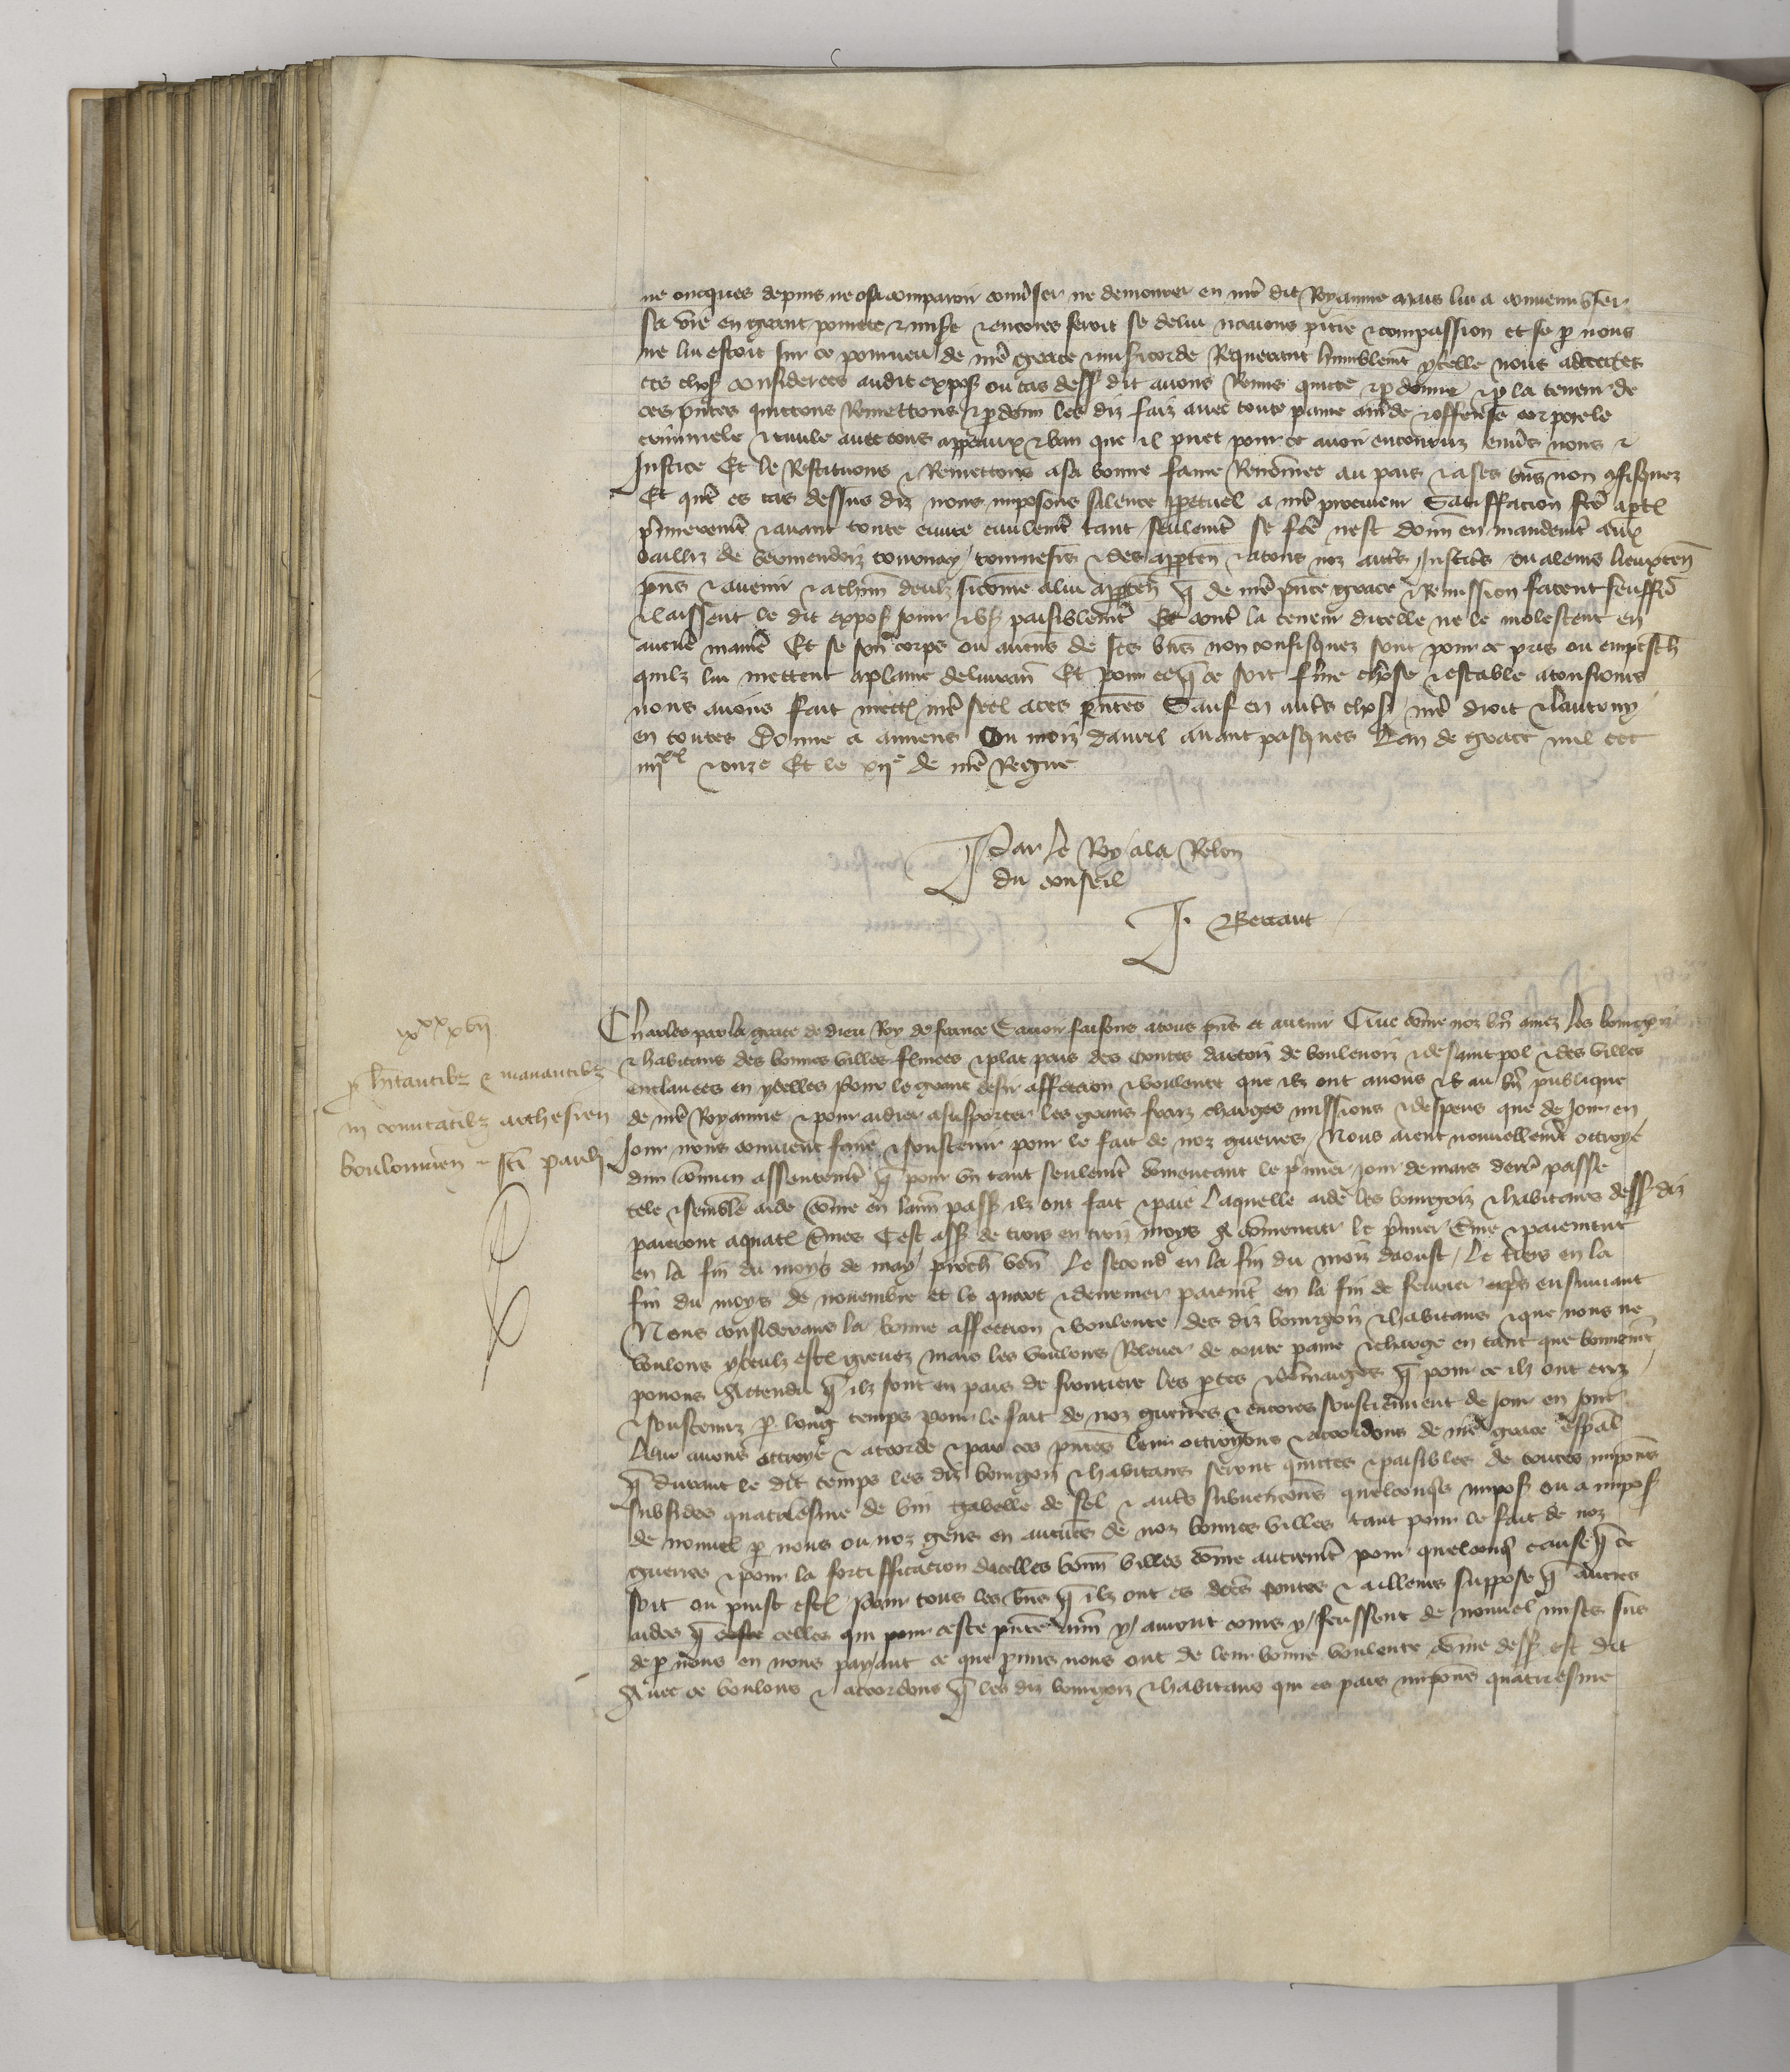 ne oncques depuis ne osa comparoir conuser ne demourer en nr̃e dit Royaume mais lui a conuenu user
sa vie en grant pourete & misere & encores feroit se de lui nauons pitie & compassion et se p nous
ne lui estoit sur ce pourueu de nr̃e grace & misicorde Requerant humblemt̃ ycelle nous adcertes
ces chos considerees audit expos ou cas dess dit auons Remis quitte & pdonne & p la teneur de
ces p̃ntes quittons Remettons & pdonn les diz faiz auec toute paine am̃de & offense corporele
criminele & ciuile auec tous appeaux & ban que il puet pour ce auoir encouruz enũs nous &
Justice Et le Restituons & Remettons a sa bonne fame Renom̃ee au pais & a ses bñs non 9fisquez
Et quãt es cas dessus diz nous imposons silence ppetuel a nr̃e procureur Satiffacion fc̃e a ptl
p̃mierem̃t & auant toute euure ciuilem̃t tant seulem̃t se fc̃e nest donn en mandem̃t aux
bailliz de vermendoiz tournay tournesis & des apptẽn & a tous noz autr̃s Justic̃s ou a leurs lieuxten
p̃ns & auenir & a chũn deulx sicom̃e a lui apptẽn q̃ de nr̃e p̃nte grace & Remission facent seuffr̃
& laissent le dit expos jouir & us paisiblem̃t Et contr̃ la teneur dicelle ne le molestent en
aucũe manier̃ Et se son corps ou aucũs de ses bñs non confisquez sont pour ce pris ou empesch
quilz lui mettent a plaine deliurañ Et pour ce q̃ ce soit ferme chose & estable a tousiours
nous auons fait mettr̃ nr̃e seel a ces p̃ntes Sauf en autr̃s chos nr̃e droit & lautruy
en toutes Donne a amiens Ou mois dauril auant pasques Lan de grace mil ccc
iiiixx & onze Et le xiie de nr̃e Regne
Par le Roy a la Relon
du conseil
J. Bertaut
ixxx xvii
p hĩtantibz & manantibz
in comitatibz arthesien
boulonnien & sc̃i pauli
Charles par la grace de dieu Roy de france Sauoir faisons a tous p̃ns et auenir Que com̃e noz bñ amez les bourgois
& habitans des bonnes villes fermees & plat pais des contes dartois de boulenois & de saint pol & des villes
enclauees en ycelles pour le grant desir affection & voulente que ilz ont a nous & au bñ publique
de nr̃e Royaume & pour aidier a supporter les grans fraiz charges missions & despens que de Jour en
Jour nous conuient faire & soustenir pour le fait de noz guerres Nous aient nouuellem̃t ottroye
dun com̃un assentem̃t q̃ pour un an tant seulem̃t com̃encant le p̃mier jour de mars derr̃ passe
tele & semblẽ aide com̃e en lann pass ilz ont fait & paie Laquelle aide les bourgois & habitans dess diz
paieront a quatr̃ t̃mes Cest ass de trois en trois moys A com̃encier le p̃mier t̃me & paiement
en la fin du moys de may proch ven Le second en la fin du mois daoust Le tiers en la
fin du moys de nouembre et le quart & derrenier paiem̃t en la fin de feurier apr̃s ensuiuant
Nous considerans la bonne affection & voulente des diz bourgois & habitans & que nous ne
voulons yceulx estr̃ greuez mais les voulons Releuer de toute paine & charge en tant que bonnem̃t
pouons Attendu q̃ ilz sont en pais de frontiere les ptes & dom̃aiges q̃ pour ce ilz ont euz
& soustenuz p long temps pour le fait de noz guerres & encores soustiennent de jour en jour
Leur auons ottroye & accorde & par ces p̃ntes leur ottroyons & accordons de nr̃e grace esp̃al
q̃ durant le dit temps les diz bourgois & habitans seront quittes & paisibles de toutes imposs
subsides quatriesme de vin gabelle de sel & autr̃s subuencions quelconqs impos ou a impos
de nouuel p nous ou noz gens en aucũes de noz bonnes villes tant pour le fait de noz
guerres & pour la fortifficacion dicelles bonn villes com̃e autrem̃t pour quelconq̃ cause q̃ ce
soit ou puist estr̃ pour tous les bñs q̃ ilz ont es dc̃es contes & ailleurs suppose q̃ autres
aides q̃ celles qui pour ceste p̃nte ann y auront cours y feussent de nouuel mises sus
de p nous en nous payant ce que promis nous ont de leur bonne voulente com̃e dess est dit
Auec ce voulons & accordons q̃ les diz bourgois & habitans qui es pais imposs quatriesme